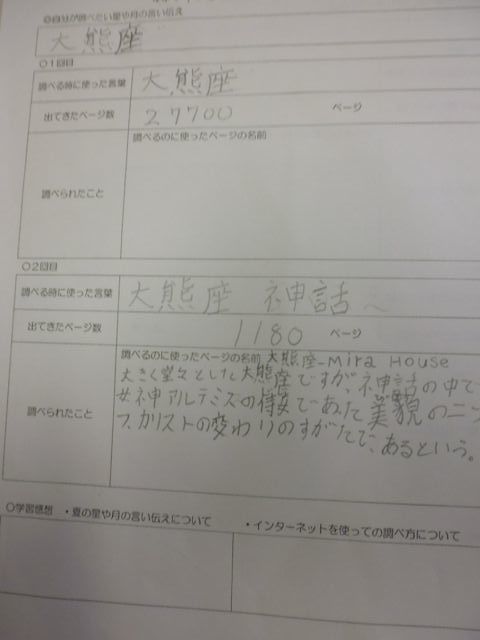 ◎自分が調べたい星や月の言い伝え
大熊座
○1回目
調べる時に使った言葉 大熊座
出てきたページ数 27700 ページ
調べるのに使ったページの名前
調べられたこと
○2回目
調べる時に使った言葉 大熊座 神話
出てきたページ数 1180 ページ
調べるのに使ったページの名前 大熊座-Mira House
大きく堂々とした大熊座ですが、神話の中で
女神アルテミスの侍女であった美貌のニン
調べられたこと
フ、カリストの変わりのすがたで、あるという。
○学習感想 ・夏の星や月の言い伝えについて ・インターネットを使っての調べ方について